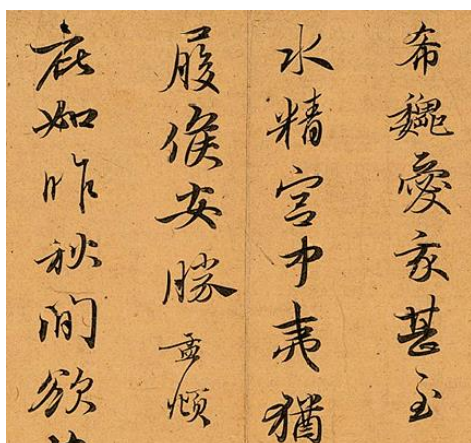 希魏愛甚至
水精宮中夷猶
履候安勝孟頫
庇如昨秋間欲